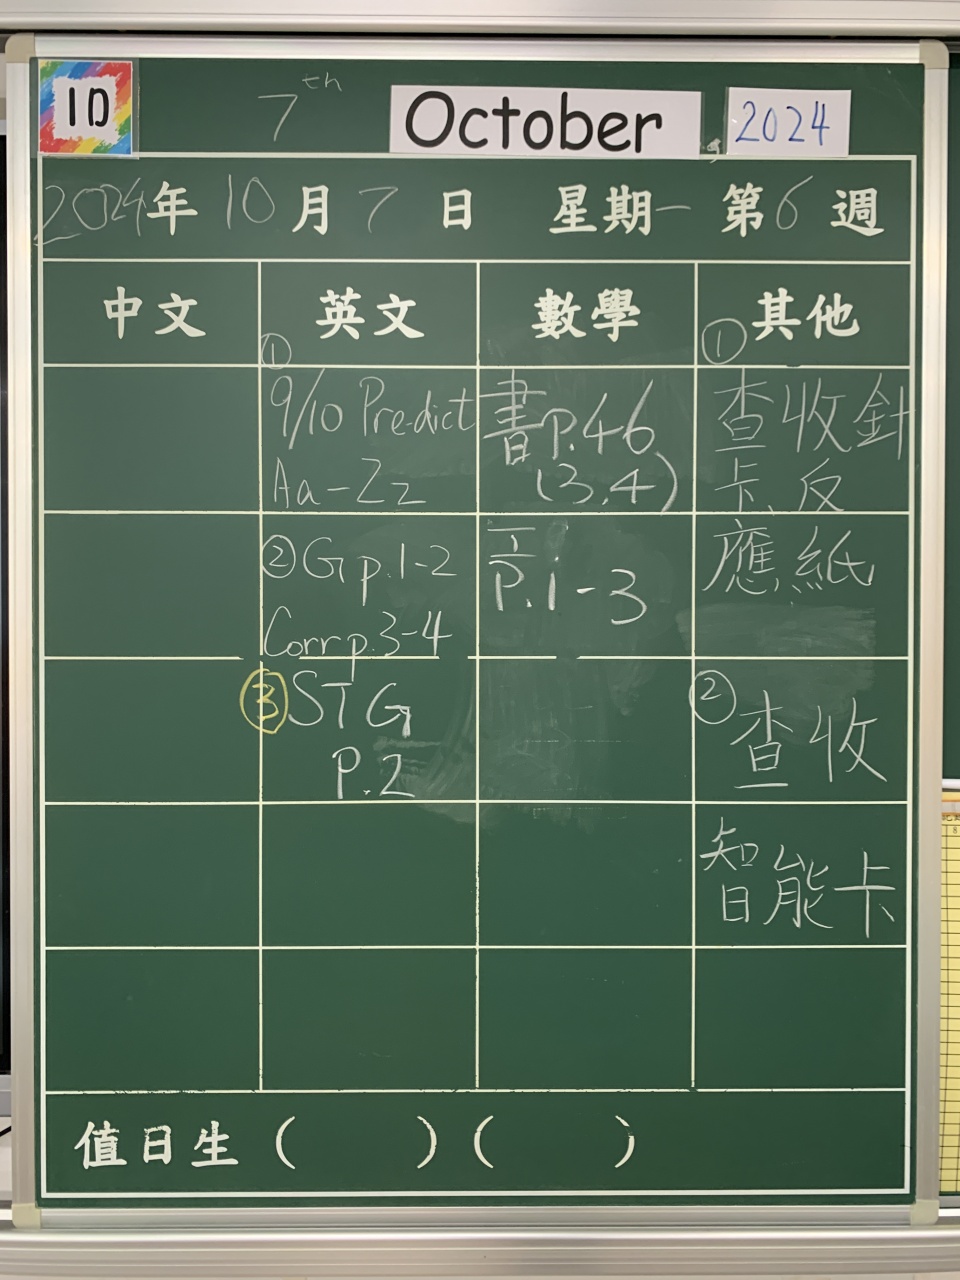 1D
7th October, 2024
2024年10月7日 星期一 第6週
中文 英文 數學 其他
①
9/10 Pre-dict
Aa-Zz
②G p.1-2
Corr p.3-4
③STG
P.2
書P.46
(3,4)
P.1-3
①
查收針
卡、反
應紙
②
查收
智能卡
值日生 ( ) ( )